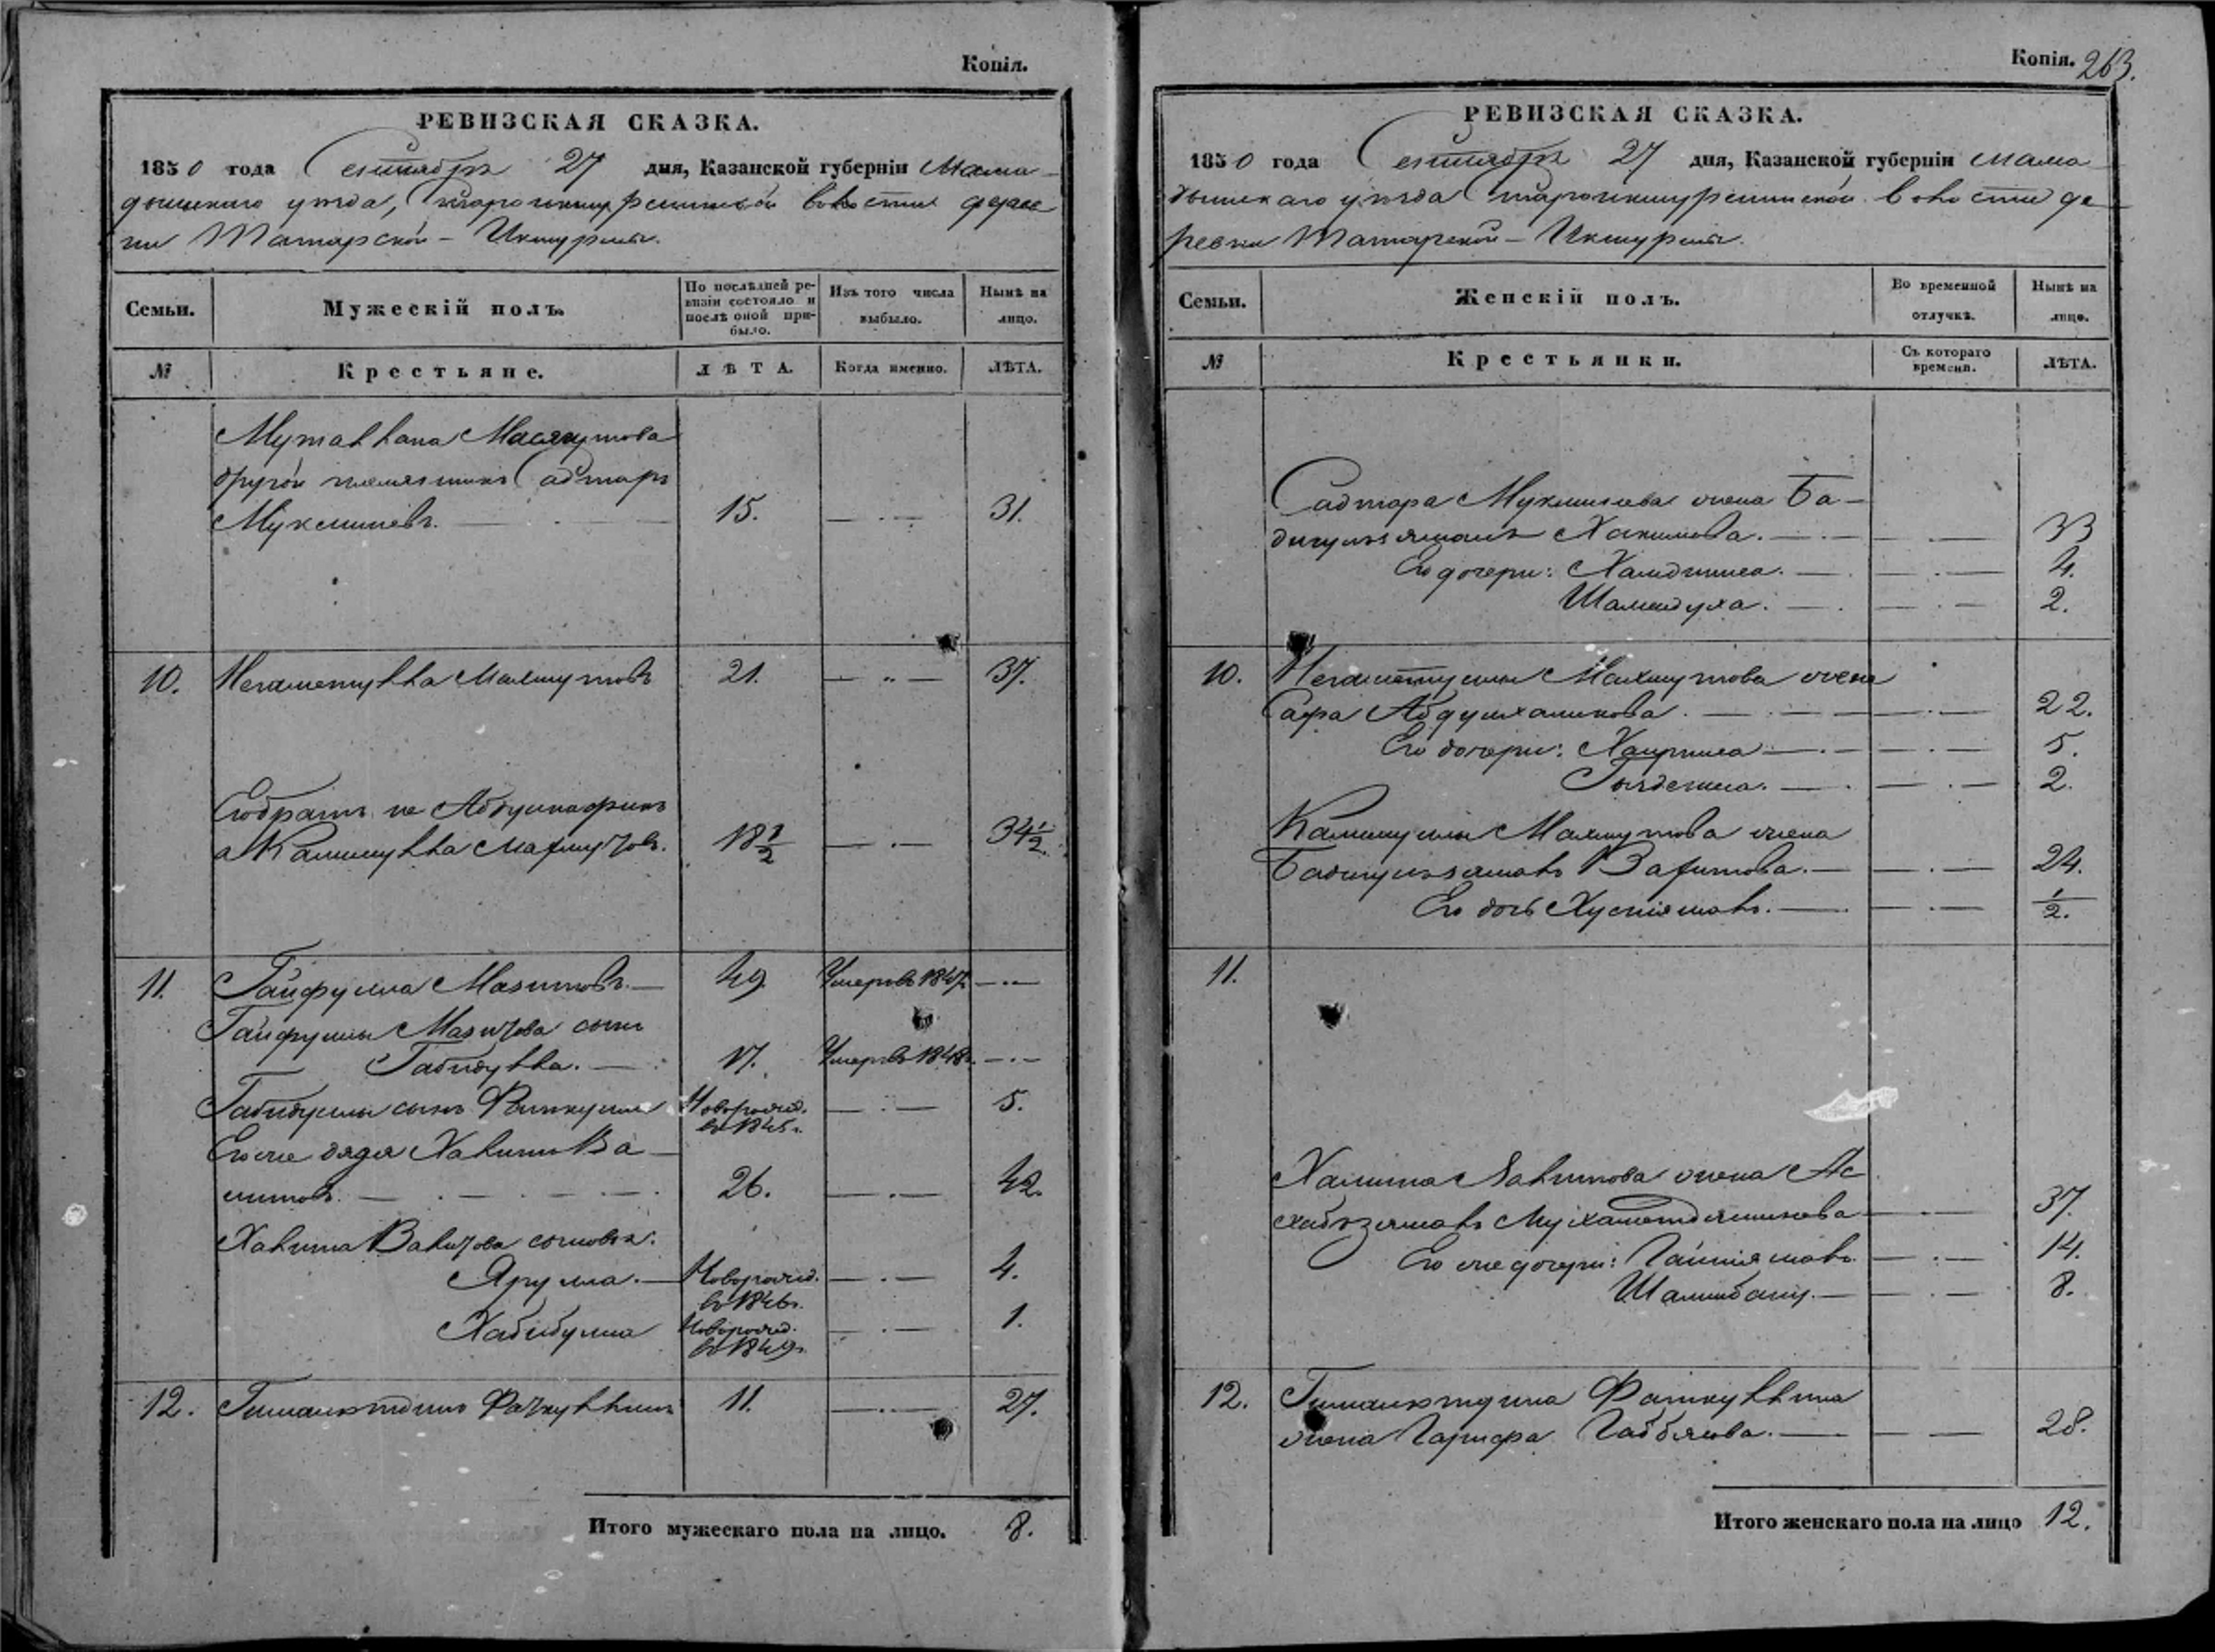 Копія.
РЕВИЗСКАЯ СКАЗКА.
1850 года Сентября 27 дня, Казанской губерніи Мама-
дышскаго уѣзда, Староикшурминской волости дерев
ни Татарской - Икшурмы.
Семьи. Мужескій полъ. По послѣдней ре-визіи состояло и послѣ оной при-было. Изъ того числа выбыло. Нынѣ на лицо.
№ Крестьяне. ЛѢТА. Когда именно. ЛѢТА.
Муталлапа Масягутова
другой племянникъ Садтаръ
Мукминевъ. 15. 31.
10. Негаметулла Махмутовъ 21. 37.
Его братъ не Абдулнафикъ
а Калимулла Махмутовъ. 18 1/2 34 1/2.
11. Гайфулла Мазитовъ. 49. Умеръ въ 1847
Гайфуллы Мазитова сынъ
Габидулла. 17. Умеръ въ 1848
Габидуллы сынъ Новорожд. 5.
въ 1845г.
Его же дядя Халитъ Ва-
литовъ. 26. 42.
Халита Валитова сыновья:
Ярулла. Новорожд. 4.
въ 1846г.
Хабибулла Новорожд. 1.
въ 1849г.
12. Гималютдинъ Фаткуллинъ 11. 27.
Итого мужескаго пола на лицо. 8.
Копія. 263.
РЕВИЗСКАЯ СКАЗКА.
1850 года Сентября 27 дня, Казанской губерніи Мама
дышскаго уѣзда Староикшурминской волости де
ревни Татарской - Икшурмы.
Семьи. Женскій полъ. Во временной отлучкѣ. Нынѣ на лицо.
№ Крестьянки. Съ котораго времени. ЛѢТА.
Садтара Мукминева жена Ба-
дигульзямалъ Хакимова. 33
Его дочери: Хамдиниса. 4.
Шамсидуха. 2.
10. Негаметуллы Махмутова жена
Сафа Абдулхаликова. 22.
Его дочери: Хаирниса 5.
2.
Калимуллы Махмутова жена
Бадигульзямалъ Вафитова. 24.
Его дочь Хуснямалъ. 1/2.
11.
Халита Валитова жена Ас
хабъзямалъ Мухаметдяминева 37.
Его же дочери: Гайниямалъ 14.
Шамсибану. 8.
12. Гималютдина Фаткуллина
жена Гарифа 28.
Итого женскаго пола на лицо 12.